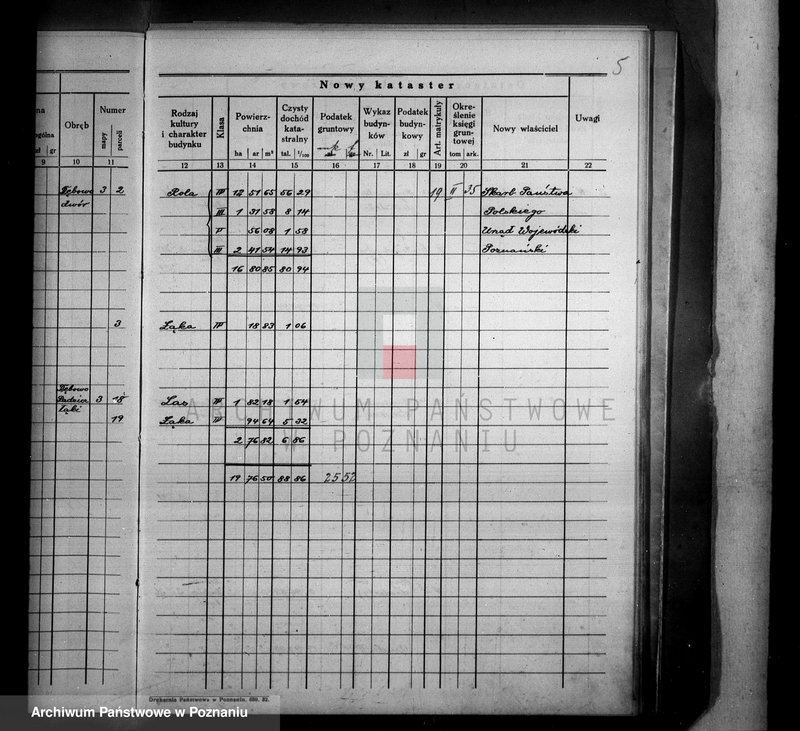 5
Nowy kataster
na
Obręb
Numer
mapy
parceli
Rodzaj kultury i charakter budynku
Klasa
Powierzchnia
ha ar m²
Czysty dochód katastralny
tal. 1/100
Podatek gruntowy
Wykaz budynków
Nr. Lit.
Podatek budynkowy
zł gr
Art. matrykuły
Określenie księgi gruntowej
tom ark.
Nowy właściciel
Uwagi
ogólna
zł gr
9 10 11 12 13 14 15 16 17 18 19 20 21 22
Dębowo 3 2 Rola IV 12 51 65 56 29 19 II 35 Skarb Państwa
dwór III 1 31 58 8 14 Polskiego
56 08 1 58 Urząd Wojewódzki
III 2 41 54 14 93 Poznański
16 80 85 80 94
3 Łąka IV 18 83 1 06
Dębowo
3 18 Las IV 1 82 18 1 54
łąki
19 Łąka IV 94 64 5 32
2 76 82 6 86
19 76 50 88 86 25 52
ARCHIWUM PAŃSTWOWE
W POZNANIU
Drukarnia Państwowa w Poznaniu,
Archiwum Państwowe w Poznaniu